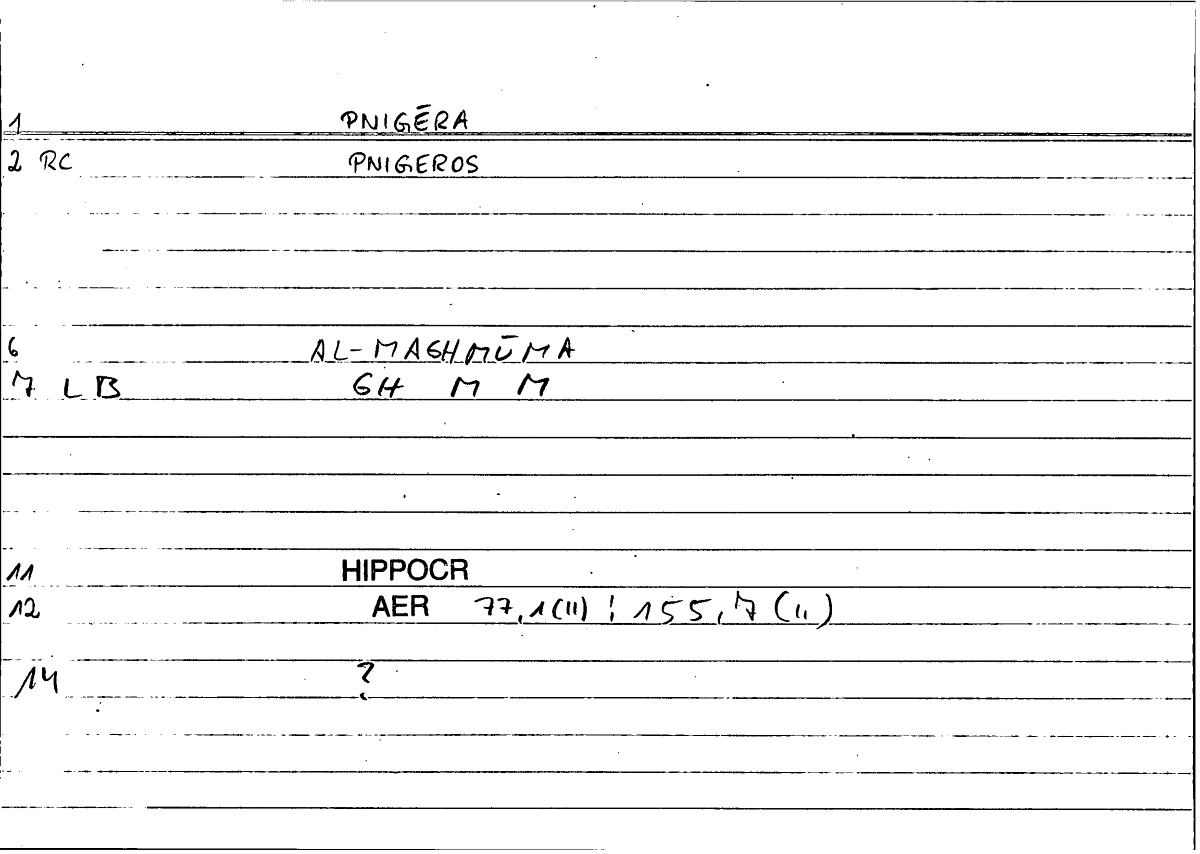 1 PNIGĒRA
2 RC PNIGEROS
6 AL-MAGHMŪMA
7 LB GH M M
11 HIPPOCR
12 AER 77,1(11) ¦ 155,7(11)
14 ?